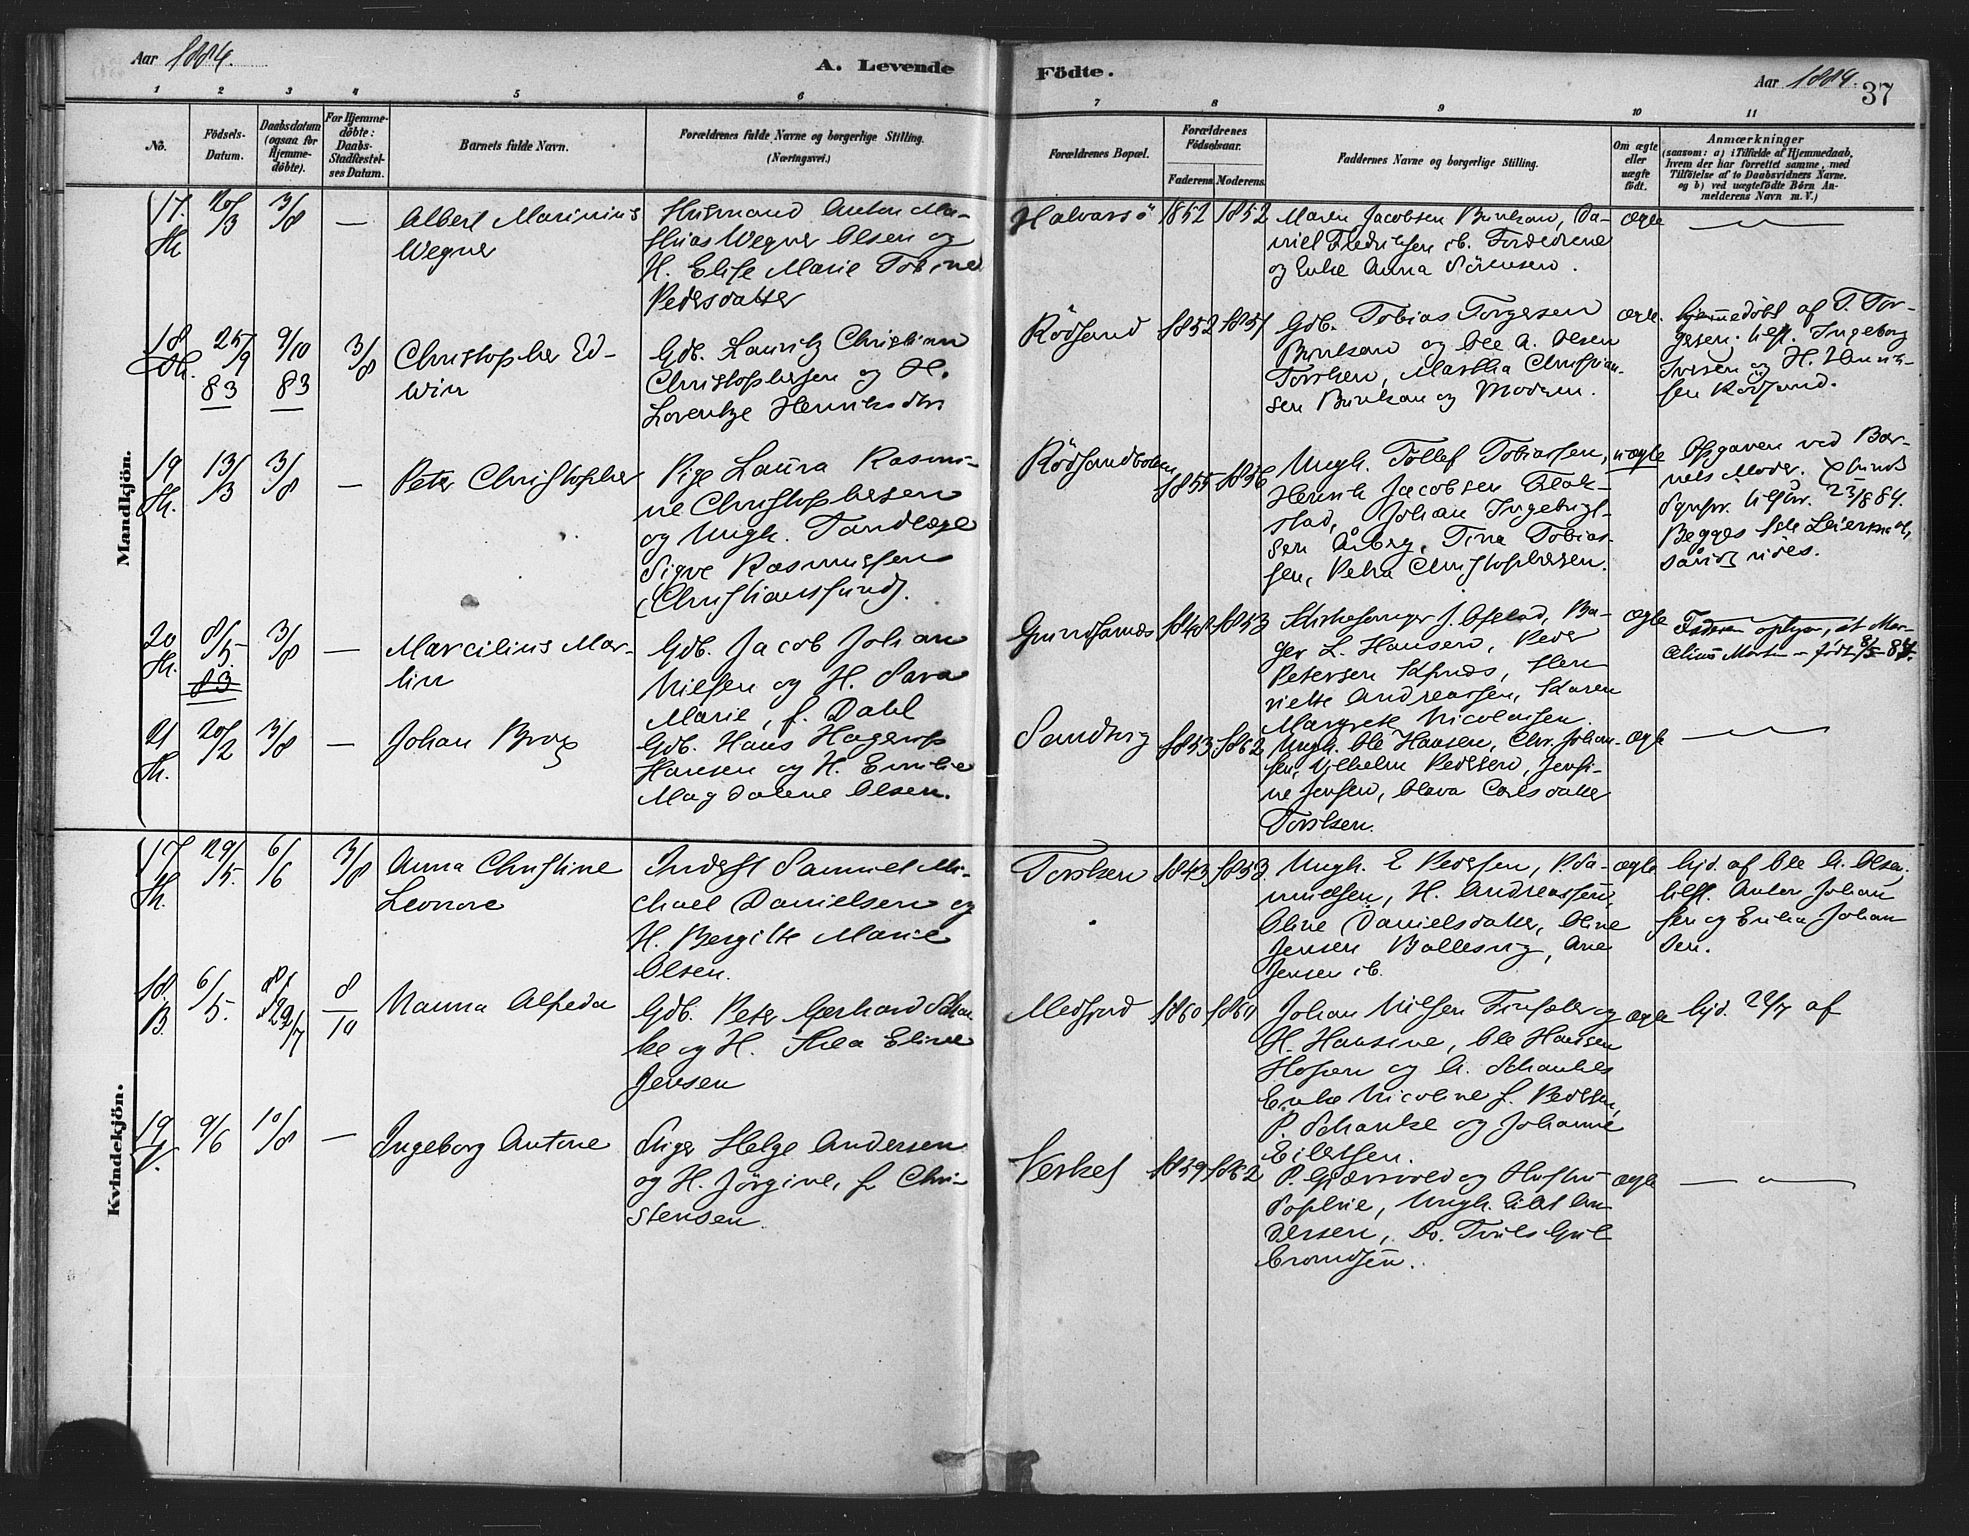 Aar 1884.
A. Levende
Födte.
Aar 1884.
37
1 2 3 4 5 6 7 8 9 10 11
No.
Födsels-
Datum.
Daabsdatum
(ogsaa for
Hjemme-
döbte).
For Hjemme-
döbte:
Daabs-
Stadfæstel-
ses Datum.
Barnets fulde Navn.
Forældrenes fulde Navne og borgerlige Stilling.
(Næringsvei.)
Forældrenes Bopæl.
Forældrenes
Födselsaar.
Faderens. Moderens.
Faddernes Navne og borgerlige Stilling.
Om ægte
eller
uægte
födt.
Anmærkninger
(saasom: a) i Tilfælde af Hjemmedaab,
hvem der har forrettet samme, med
Tilföielse af to Daabsvidners Navne.
og b) ved uægtefödte Börn An-
melderens Navn m. V.)
Mandkjön.
17.
20/3
3/8
—
Albert Marinius
Wegner
Husmand Anton Ma-
thias Wegner Olsen og
H. Elise Marie Tobine
Pedersdatter
Halvarsö
1852
1852
Maren Jacobsen Burkan, Da-
niel Fredriksen ib. Forældrene
og Enke Anna Sörensen.
ægte
18
25/9
83
9/10
83
3/8
Christopher Ed-
win
Gdb. Lauritz Christian
Christophersen og H.
Lorentze Henriksdtr
Rödsand
1852
1857
Gdb. Tobias Torgersen
Burkan og Ole A. Olsen
Torsken, Martha Christian-
sen Burkan og Modren.
ægte.
hjemmedöbt af T. Tor-
gersen. tilst. Ingeborg
Iversen og H. Henrik-
sen Rödsand.
19
13/3
3/8
—
Peter Christopher
Pige Laura Rasmi-
ne Christophersen
og Ungk. Tandlæge
Sigve Rasmussen
(Christianssund).
Rödsandbotten
1855
1856
Ungk. Tollef Tobiassen,
Henrik Jacobsen Flak-
stad, Johan Ingebrigt-
sen Årberg, Tina Tobias-
sen, Petra Christophersen.
uægte
Opgaven ved Bar-
nets Moder.
23/8 84.
Begges 1ste Leiersmaal,
såvidt vides.
20
8/5.
83
3/8
—
Marcilius Mar-
tin
Gdb. Jacob Johan
Nilsen og H. Sara
Marie, f. Dahl
Grundfarnes
1848
1853
Kirkesanger J. Opstad, Ba-
ger L. Hansen, Peder
Petersen Kjfnæs, Hen-
riette Andreassen, Karen
Margrete Nicolaisen.
ægte
Faderen oplyser, at Mar-
celius Martin – födt 8/5 84.
21
20/2
3/8
—
Johan Brox
Gdb. Hans Hagerup
Hansen og H. Emilie
Magdalene Olsen.
Sandvig
1853
1862
Ungk. Ole Hansen, Chr. Johan-
sen, Vilhelm Pedersen, Jensi-
ne Jensen, Olava Carlsdatter
Torsken.
ægte
Kvindekjön.
17
29/5.
6/6
3/8
Anna Christine
Leonore
Inderst Samuel Mi-
chael Danielsen og
H. Bergitte Marie
Olsen.
Torsken
1843
1853
Ungk. E Pedersen, P. Sa-
muelsen, H. Andreassen,
Oline Danielsdatter, Oline
Jensen Ballesvig, Ane
Jensen ib.
ægte
hjd. af Ole A. Olsen,
tilst. Anton Johan
sen og Erika Johan
sen.
18.
B.
6/5.
29/7
8/10
Nanna Alfreda
Gdb. Peter Gerhard Schan
ke og H. Thea Eline
Jensen
Medfjord
1860
1864
Johan Nilsen Finsæter og
H. Hansine, Ole Hansen
Hofsen og A. Schankes
Enke Nicoline f. Pedersen,
P. Schanke og Johanne
Eilertsen.
ægte
hjd. 29/7 af
19
9/6
10/8
—
Ingeborg Antone
Stiger Helge Andersen
og H. Jörgine, f. Chri-
stensen.
1859
1862
P. Gjærvold og Hustru
Sophie, Ungk. Eilert An-
dersen, Do. Truls Gul-
brandsen.
ægte